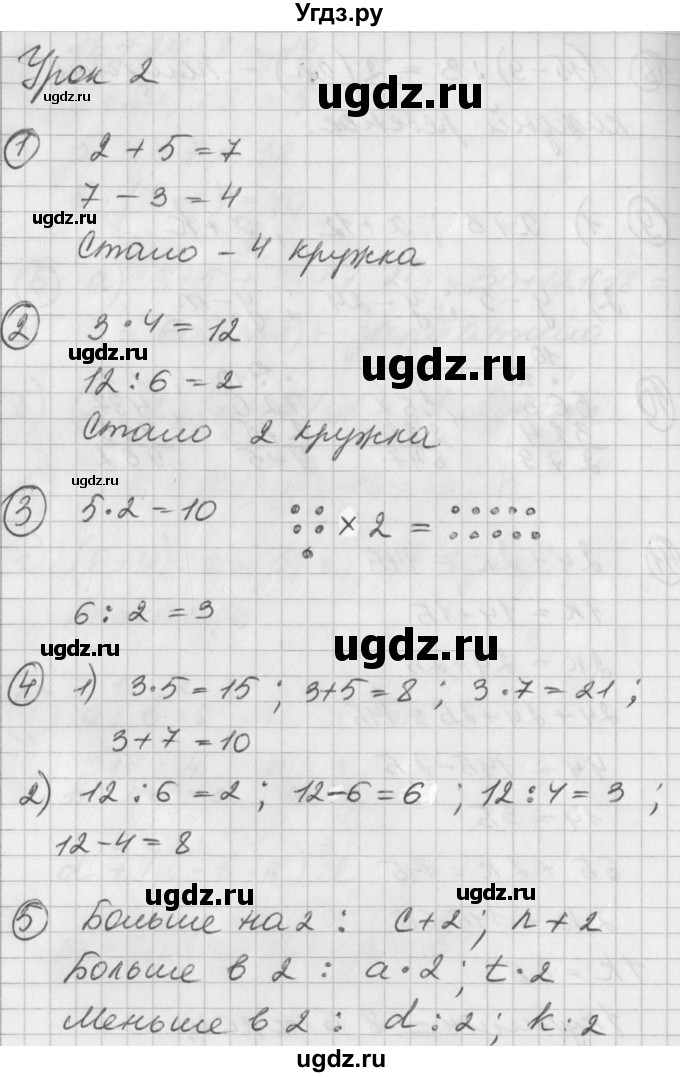 Угдз.ру
Урок 2
ugdz.ru
ugdz.ru
① 2 + 5 = 7
7 - 3 = 4
ugdz.ru
Стало - 4 кружка
② 3 · 4 = 12
ugdz.ru
ugdz.ru
12 : 6 = 2
Стало 2 кружка
ugdz.ru
③ 5 · 2 = 10 × 2 =
6 : 2 = 3
ugdz.ru
ugdz.ru
④ 1) 3·5 = 15 ; 3+5 = 8 ; 3·7 = 21 ;
3 + 7 = 10
2) 12 : 6 = 2 ; 12-6 = 6 ; 12 : 4 = 3 ;
12 - 4 = 8
ugdz.ru
ugdz.ru
⑤ Больше на 2 : c+2 ; n+2
Больше в 2 : a·2 ; t·2
Меньше в 2 : d : 2 ; k : 2
ugdz.ru